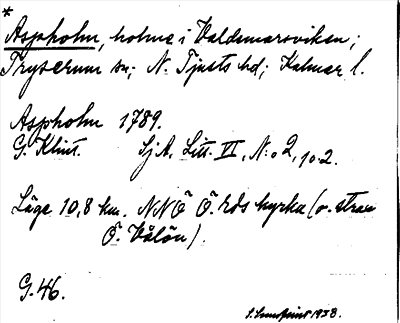 *
Aspholm, holme i Valdemarsviken;
Tryserum sn; N. Tjusts hd; Kalmar l.
Aspholm 1789.
G. Klint. Sj A. Litt. VI, N:o 2, 10.2.
Läge 10,8 km. NNÖ Ö. Eds kyrka (v. stran
Ö. Vålön).
G. 46.
1938.